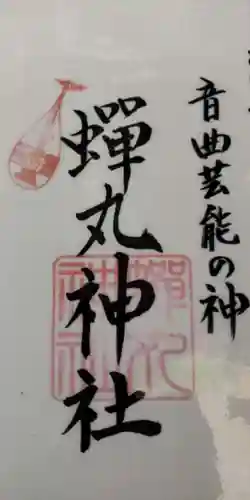 音曲芸能の神
蟬丸神社
蟬丸
神社